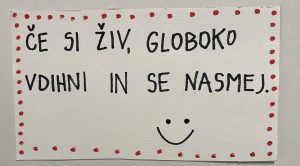 ČE SI ŽIV, GLOBOKO
VDIHNI IN SE NASMEJ.